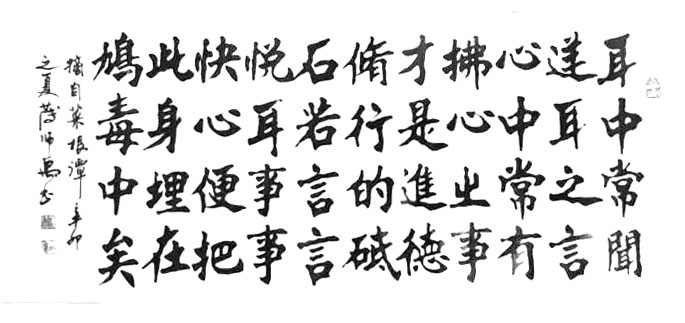 耳中常聞
逆耳之言
心中常有
拂心之事
才是進德
脩行的砥
石若言言
悦耳事事
快心便把
此身埋在
鴆毒中矣
摘自菜根譚辛卯
之夏